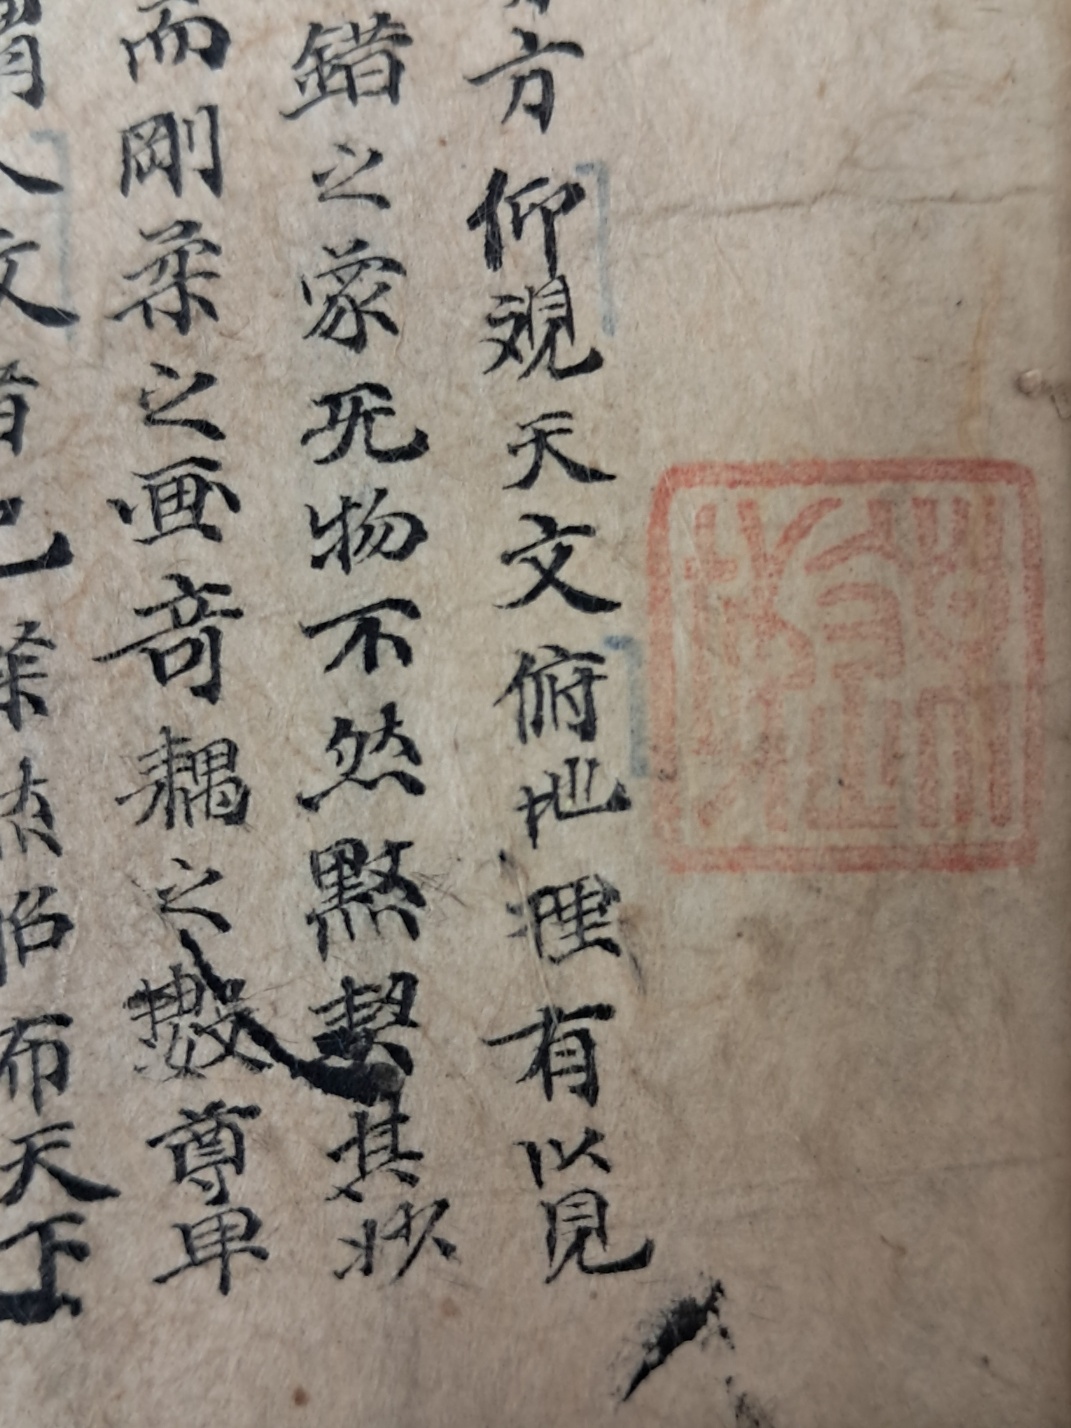 方仰觀天文俯地理有以見
錯之象死物不然黙契其妙
而剛柔之画竒耦之數尊卑
謂人文者已粲然昭布天下